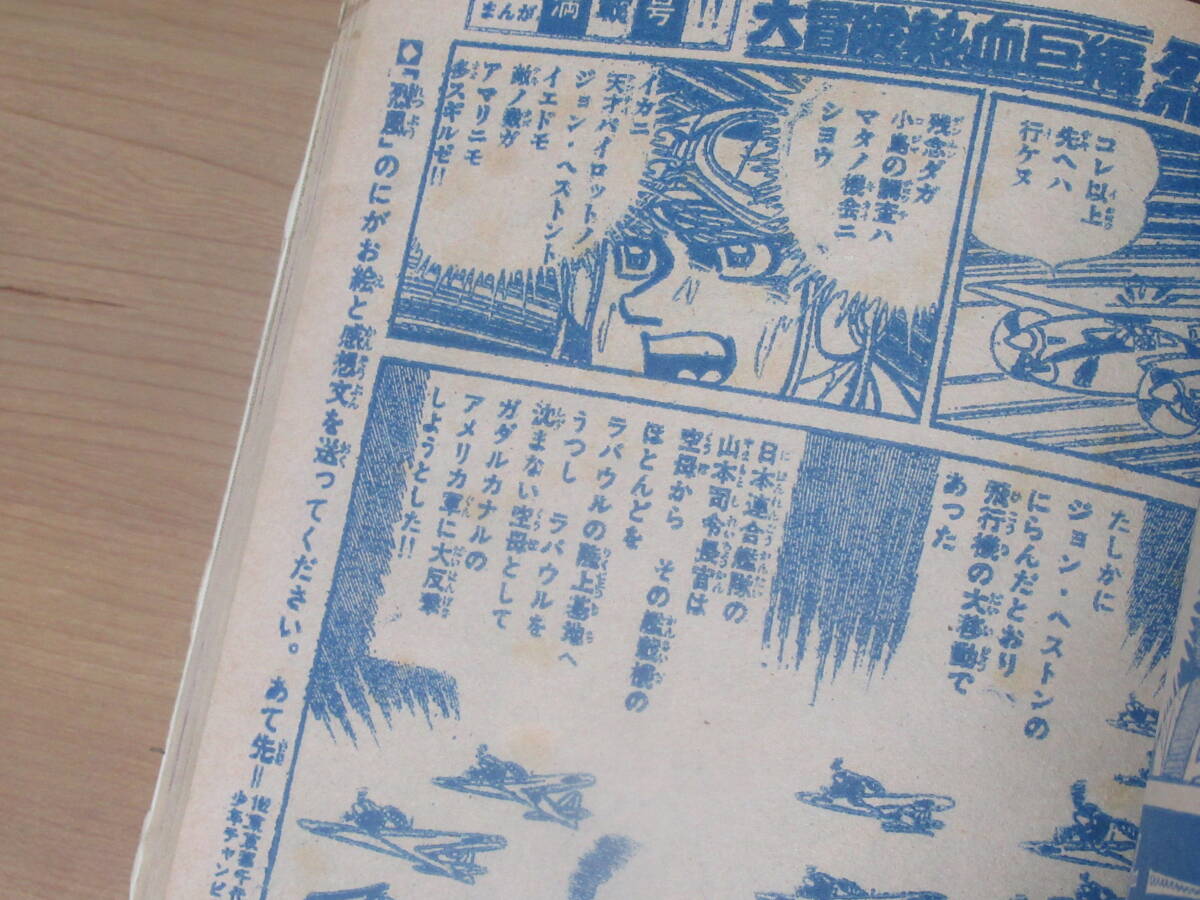 まんが満載号!!
大冒険熱血巨編
コレ以上
先ヘハ
行ケヌ
残念ダガ
小島の調査ハ
マタノ機会ニ
シヨウ
イカニ
天才パイロットノ
ジョン・ヘストント
イエドモ
敵ノ数ガ
アマリニモ
多スギルゼ!!
たしかに
ジョン・ヘストンの
にらんだとおり
飛行機の大移動で
あった
日本連合艦隊の
山本司令長官は
空母から その艦載機の
ほとんどを
ラバウルの陸上基地へ
うつし ラバウルを
沈まない空母として
ガダルカナルの
アメリカ軍に大反撃
しようとした!!
◆「烈風」のにがお絵と感想文を送ってください。 あて先=102東京都千代
少年チャンピ